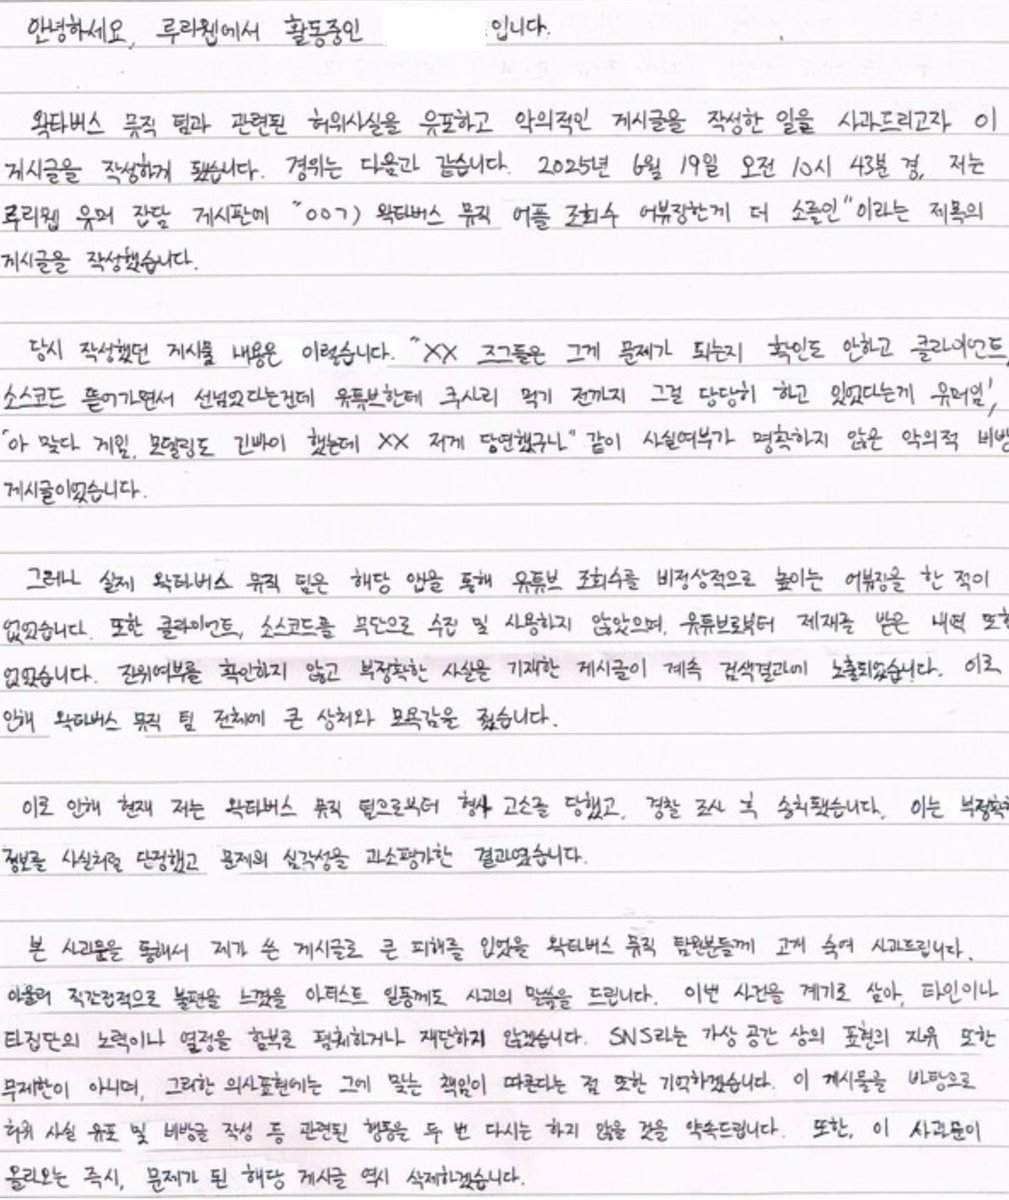 안녕하세요, 루리웹에서 활동중인 입니다.
왁타버스 뮤직 팀과 관련된 허위사실을 유포하고 악의적인 게시글을 작성한 일을 사과드리고자 이
게시글을 작성하게 됐습니다. 경위는 다음과 같습니다. 2025년 6월 19일 오전 10시 43분 경, 저는
루리웹 유머 잡담 게시판에 "007) 왁타버스 뮤직 어플 조회수 어뷰징한게 더 소름인"이라는 제목의
게시글을 작성했습니다.
당시 작성했던 게시물 내용은 이렇습니다. "XX 즈그들은 그게 문제가 되는지 확인도 안하고 클라이언트,
소스코드 뜯어가면서 선넘었다는건데 유튜브한테 쿠사리 먹기 전까지 그걸 당당히 하고 있었다는게 유머임',
"아 맞다 게임, 모델링도 긴빠이 했는데 XX 저게 당연했구나" 같이 사실여부가 명확하지 않은 악의적 비방
게시글이었습니다.
그러나 실제 왁타버스 뮤직 팀은 해당 앱을 통해 유튜브 조회수를 비정상적으로 높이는 어뷰징을 한 적이
없었습니다. 또한 클라이언트, 소스코드를 무단으로 수집 및 사용하지 않았으며, 유튜브로부터 제재를 받은 내역 또한
없었습니다. 진위여부를 확인하지 않고 부정확한 사실을 기재한 게시글이 계속 검색결과에 노출되었습니다. 이로
인해 왁타버스 뮤직 팀 전체에 큰 상처와 모욕감을 줬습니다.
이로 인해 현재 저는 왁타버스 뮤직 팀으로부터 형사 고소를 당했고, 경찰 조사 후 송치됐습니다. 이는 부정확한
정보를 사실처럼 단정했고 문제의 심각성을 과소평가한 결과였습니다.
본 사과문을 통해서 제가 쓴 게시글로 큰 피해를 입었을 왁타버스 뮤직 팀원분들께 고개 숙여 사과드립니다.
아울러 직간접적으로 불편을 느꼈을 아티스트 일동께도 사과의 말씀을 드립니다. 이번 사건을 계기로 삼아, 타인이나
타집단의 노력이나 열정을 함부로 폄훼하거나 재단하지 않겠습니다. SNS라는 가상 공간 상의 표현의 자유 또한
무제한이 아니며, 그러한 의사표현에는 그에 맞는 책임이 따른다는 점 또한 기억하겠습니다. 이 게시물을 바탕으로
허위 사실 유포 및 비방글 작성 등 관련된 행동을 두 번 다시는 하지 않을 것을 약속드립니다. 또한, 이 사과문이
올라오는 즉시, 문제가 된 해당 게시글 역시 삭제하겠습니다.